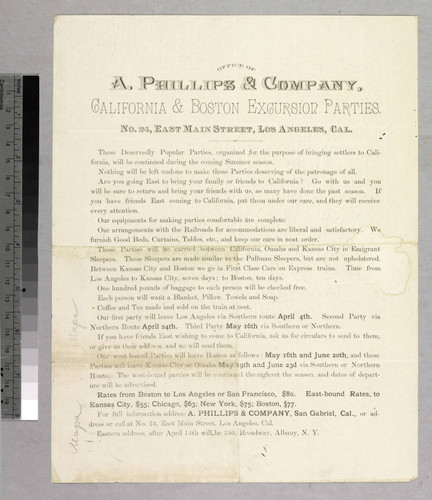 OFFICE OF
A. PHILLIPS & COMPANY,
CALIFORNIA & BOSTON EXCURSION PARTIES.
No. 24, EAST MAIN STREET, LOS ANGELES, CAL.
These Deservedly Popular Parties, organized for the purpose of bringing settlers to Cali-
fornia, will be continued during the coming Summer season.
Nothing will be left undone to make these Parties deserving of the patronage of all.
Are you going East to bring your family or friends to California? Go with us and you
will be sure to return and bring your friends with us, as many have done the past season. If
you have friends East coming to California, put them under our care, and they will receive
every attention.
Our equipments for making parties comfortable are complete.
Our arrangements with the Railroads for accommodations are liberal and satisfactory. We
furnish Good Beds, Curtains, Tables, etc., and keep our cars in neat order.
These Parties will be carried between California, Omaha and Kansas City in Emigrant
Sleepers. These Sleepers are made similar to the Pullman Sleepers, but are not upholstered.
Between Kansas City and Boston we go in First Class Cars on Express trains. Time from
Los Angeles to Kansas City, seven days; to Boston, ten days.
One hundred pounds of baggage to each person will be checked free.
Each person will want a Blanket, Pillow, Towels and Soap.
Coffee and Tea made and sold on the train at cost.
Our first party will leave Los Angeles via Southern route April 4th. Second Party via
Northern Route April 24th. Third Party May 16th via Southern or Northern.
If you have friends East wishing to come to California, ask us for circulars to send to them,
or give us their address, and we will send them.
Our west-bound Parties will leave Boston as follows: May 16th and June 20th, and these
Parties will leave Kansas City or Omaha May 19th and June 23d via Southern or Northern
Route. The west-bound parties will be continued throughout the season, and dates of depart-
ure will be advertised.
Rates from Boston to Los Angeles or San Francisco, $80. East-bound Rates, to
Kansas City, $55; Chicago, $63; New York, $75; Boston, $77.
For full information address A. PHILLIPS & COMPANY, San Gabriel, Cal., or ad-
dress or call at No. 24, East Main Street, Los Angeles, Cal.
Eastern address, after April 14th will be 350, Broadway, Albany, N. Y.